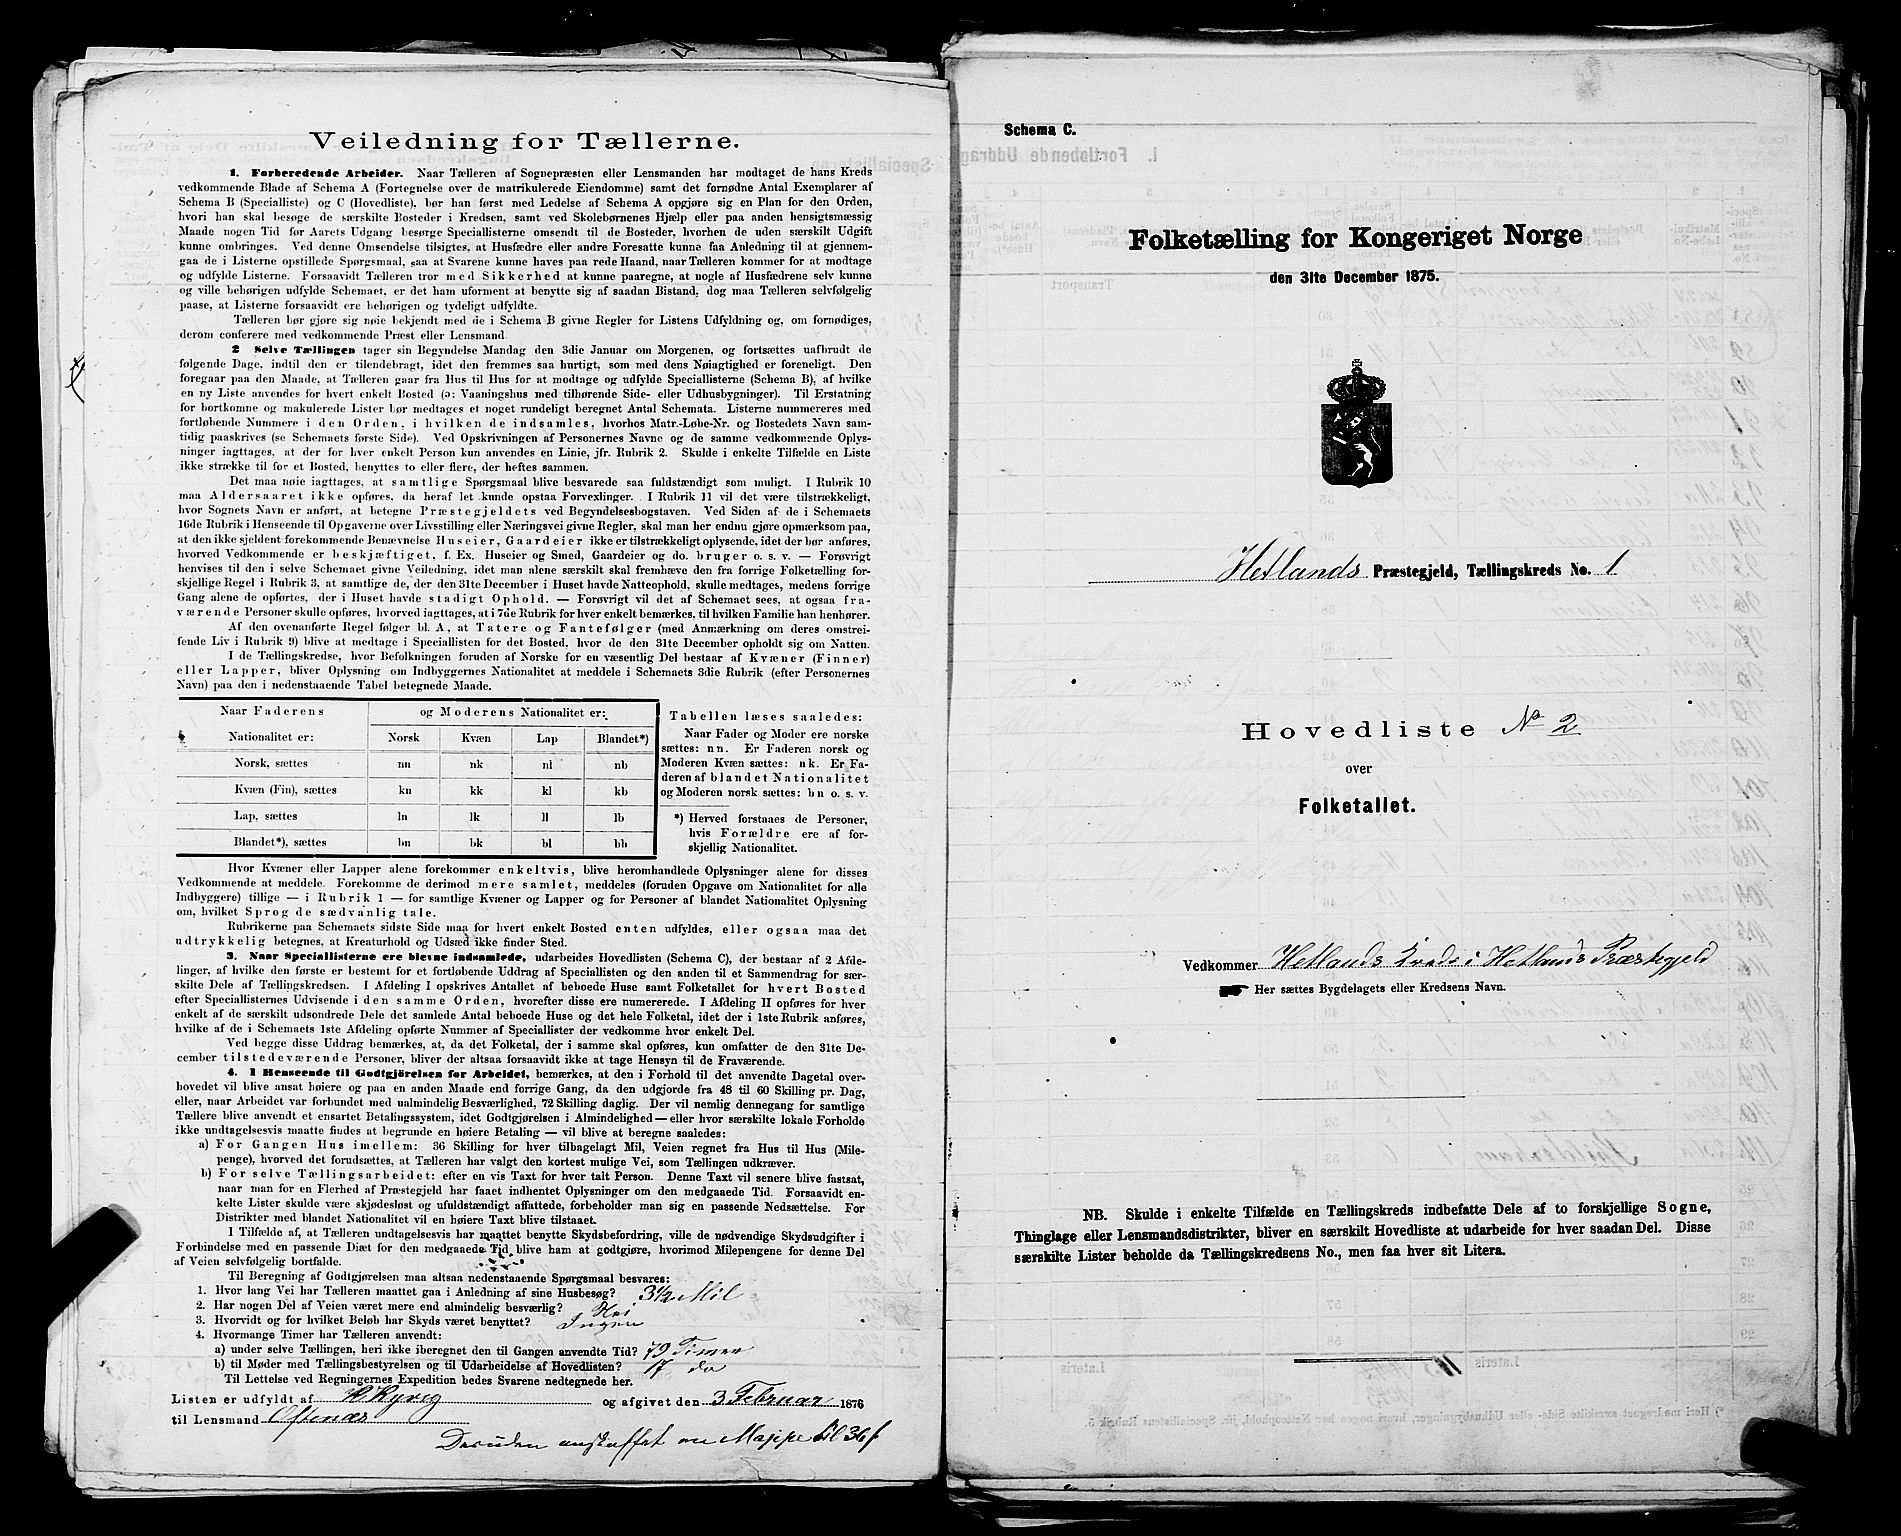 Veiledning for Tællerne.
1. Forberedende Arbeider. Naar Tælleren af Sognepræsten eller Lensmanden har modtaget de hans Kreds
vedkommende Blade af Schema A (Fortegnelse over de matrikulerede Eiendomme) samt det fornødne Antal Exemplarer af
Schema B (Specialliste) og C (Hovedliste), bør han først med Ledelse af Schema A opgjøre sig en Plan for den Orden,
hvori han skal besøge de særskilte Bosteder i Kredsen, samt ved Skolebørnenes Hjælp eller paa anden hensigtsmæssig
Maade nogen Tid før Aarets Udgang besørge Speciallisterne omsendt til de Bosteder, hvorhen de uden særskilt Udgift
kunne ombringes. Ved denne Omsendelse tilsigtes, at Husfædre eller andre Foresatte kunne faa Anledning til at gjennem-
gaa de i Listerne opstillede Spørgsmaal, saa at Svarene kunne haves paa rede Haand, naar Tælleren kommer for at modtage
og udfylde Listerne. Forsaavidt Tælleren tror med Sikkerhed at kunne paaregne, at nogle af Husfædrene selv kunne
og ville behørigen udfylde Schemaet, er det ham uforment at benytte sig af saadan Bistand, dog maa Tælleren selvfølgelig
paase, at Listerne forsaavidt ere behørigen og tydeligt udfyldte.
Tælleren bør gjøre sig nøie bekjendt med de i Schema B givne Regler for Listens Udfyldning og, om fornødiges,
derom conferere med vedkommende Præst eller Lensmand.
2 Selve Tællingen tager sin Begyndelse Mandag den 3die Januar om Morgenen, og fortsættes uafbrudt de
følgende Dage, indtil den er tilendebragt, idet den fremmes saa hurtigt, som med dens Nøiagtighed er foreneligt. Den
foregaar paa den Maade, at Tælleren gaar fra Hus til Hus for at modtage og udfylde Speciallisterne (Schema B), af hvilke
en ny Liste anvendes for hvert enkelt Bosted (ɔ: Vaaningshus med tilhørende Side- eller Udhusbygninger). Til Erstatning
for bortkomne og makulerede Lister bør medtages et noget rundeligt beregnet Antal Schemata. Listerne nummereres med
fortløbende Nummere i den Orden, i hvilken de indsamles, hvorhos Matr.-Løbe-Nr. og Bostedets Navn sam-
tidig paaskrives (se Schemaets første Side). Ved Opskrivningen af Personernes Navne og de samme vedkommende Oplys-
ninger iagttages, at der for hver enkelt Person kun anvendes en Linie, jfr. Rubrik 2. Skulde i enkelte Tilfælde en Liste
ikke strække til for et Bosted, benyttes to eller flere, der heftes sammen.
Det maa nøie iagttages, at samtlige Spørgsmaal blive besvarede saa fuldstændigt som muligt. I Rubrik 10
maa Aldersaaret ikke opføres, da heraf let kunde opstaa Forvexlinger. I Rubrik 11 vil det være tilstrækkeligt,
hvor Sognets Navn er anført, at betegne Præstegjeldets ved Begyndelsesbogstaven. Ved Siden af de i Schemaets
16de Rubrik i Henseende til Opgaverne over Livsstilling eller Næringsvei givne Regler, skal man her endnu gjøre opmærksom paa,
at den ikke sjeldent forekommende Benævnelse Huseier, Gaardeier ikke er tilstrækkeligt oplysende, idet der bør anføres,
hvorved Vedkommende er beskjæftiget, f. Ex. Huseier og Smed, Gaardeier og do. bruger o. s. v. — Forøvrigt
henvises til den i selve Schemaet givne Veiledning, idet man alene særskilt skal fremhæve den fra forrige Folketælling for-
skjellige Regel i Rubrik 3, at samtlige de, der den 31te December i Huset havde Natteophold, skulle medtages, medens forrige
Gang alene de opførtes, der i Huset havde stadigt Ophold. — Forøvrigt vil det af Schemaet sees, at ogsaa fra-
værende Personer skulle opføres, hvorved iagttages, at i 7de Rubrik for hver enkelt bemærkes, til hvilken Familie han henhører.
Af den ovenanførte Regel følger bl. A, at Tatere og Fantefølger (med Anmærkning om deres omstrei-
fende Liv i Rubrik 9) blive at medtage i Speciallisten for det Bosted, hvor de den 31te December opholdt sig om Natten.
I de Tællingskredse, hvor Befolkningen foruden af Norske for en væsentlig Del bestaar af Kvæner (Finner)
eller Lapper, bliver Oplysning om Indbyggernes Nationalitet at meddele i Schemaets 3die Rubrik (efter Personernes
Navn) paa den i nedenstaaende Tabel betegnede Maade.
Naar Faderens og Moderens Nationalitet er:
Nationalitet er: Norsk Kvæn Lap Blandet*)
Norsk, sættes nn nk nl nb
Kvæn (Fin), sættes kn kk kl kb
Lap, sættes ln lk ll lb
Blandet*), sættes bn bk bl bb
Tabellen læses saaledes:
Naar Fader og Moder ere norske
sættes: nn. Er Faderen norsk og
Moderen Kvæn sættes: nk. Er Fa-
deren af blandet Nationalitet
og Moderen norsk sættes: bn o. s. v.
*) Herved forstaaes de Personer,
hvis Forældre ere af for-
skjellig Nationalitet.
Hvor Kvæner eller Lapper alene forekommer enkeltvis, blive heromhandlede Oplysninger alene for disses
Vedkommende at meddele. Forekomme de derimod mere samlet, meddeles (foruden Opgave om Nationalitet for alle
Indbyggere) tillige — i Rubrik 1 — for samtlige Kvæner og Lapper og for Personer af blandet Nationalitet Oplysning
om, hvilket Sprog de sædvanlig tale.
Rubrikerne paa Schemaets sidste Side maa for hvert enkelt Bosted enten udfyldes, eller ogsaa maa det
udtrykkelig betegnes, at Kreaturhold og Udsæd ikke finder Sted.
3. Naar Speciallisterne ere blevne indsamlede, udarbeides Hovedlisten (Schema C), der bestaar af 2 Afde-
linger, af hvilke den første er bestemt for et fortløbende Uddrag af Speciallisten og den anden til et Sammendrag for sær-
skilte Dele af Tællingskredsen. I Afdeling I opskrives Antallet af beboede Huse samt Folketallet for hvert Bosted
efter Speciallisternes Udvisende i den samme Orden, hvorefter disse ere numererede. I Afdeling II opføres for hver
enkelt af de særskilt udsondrede Dele det samlede Antal beboede Huse og det hele Folketal, idet der i 1ste Rubrik anføres,
hvilke af de i Schemaets 1ste Afdeling opførte Nummer af Speciallister der vedkomme hver enkelt Del.
Ved begge disse Uddrag bemærkes, at, da det Folketal, der i samme skal opføres, kun omfatter de den 31te De-
cember tilstedeværende Personer, bliver der altsaa forsaavidt ikke at tage Hensyn til de Fraværende.
4. I Henseende til Godtgjörelsen for Arbeidet, bemærkes, at den i Forhold til det anvendte Dagetal over-
hovedet vil blive ansat høiere og paa en anden Maade end forrige Gang, da den udgjorde fra 48 til 60 Skilling pr. Dag,
eller, naar Arbeidet var forbundet med ualmindelig Besværlighed, 72 Skilling daglig. Der vil nemlig dennegang for samtlige
Tællere blive anvendt et ensartet Betalingssystem, idet Godtgjørelsen i Almindelighed — eller hvor særskilte lokale Forholde
ikke undtagelsesvis maatte findes at begrunde en høiere Betaling — vil blive at beregne saaledes:
a) For Gangen Hus imellem: 36 Skilling for hver tilbagelagt Mil, Veien regnet fra Hus til Hus (Mile-
penge), hvorved det forudsættes, at Tælleren har valgt den kortest mulige Vei, som Tællingen udkræver.
b) For selve Tællingsarbeidet: efter en vis Taxt for hver talt Person. Denne Taxt vil senere blive fastsat,
naar man for en Flerhed af Præstegjeld har faaet indhentet Oplysninger om den medgaaede Tid. Forsaavidt en-
kelte Lister skulde være skjødesløst og ufuldstændigt affattede, forbeholder man sig en passende Nedsættelse. For
Distrikter med blandet Nationalitet vil en høiere Taxt blive tilstaaet.
I Tilfælde af, at Tælleren undtagelsesvis har maattet benytte Skydsbefordring, ville de nødvendige Skydsudgifter i
Forbindelse med en passende Diæt for den medgaaede Tid blive ham at godtgjøre, hvorimod Milepengene for denne Del
af Veien selvfølgelig bortfalde.
Til Beregning af Godtgjørelsen maa altsaa nedenstaaende Spørgsmaal besvares:
1. Hvor lang Vei har Tælleren maattet gaa i Anledning af sine Husbesøg? 3½ Mil
2. Har nogen Del af Veien været mere end almindelig besværlig? Nei
3. Hvorvidt og for hvilket Beløb har Skyds været benyttet? Ingen
4. Hvormange Timer har Tælleren anvendt:
a) under selve Tællingen, heri ikke iberegnet den til Gangen anvendte Tid? 79 Timer
b) til Møder med Tællingsbestyrelsen og til Udarbeidelse af Hovedlisten? 17 do
Til Lettelse ved Regningernes Expedition bedes Svarene nedtegnede her.
Listen er udfyldt af Kyvig og afgivet den 3 Februar 1876
til Lensmand Oftenæs
Desuden anskaffet en Mappe til 36 f
Schema C.
Folketælling for Kongeriget Norge
den 31te December 1875.
Hetlands Præstegjeld, Tællingskreds No. 1
Hovedliste No 2
over
Folketallet.
Vedkommer Hetlands Kreds i Hetlands Præstegjeld
Her sættes Bygdelagets eller Kredsens Navn.
NB. Skulde i enkelte Tilfælde en Tællingskreds indbefatte Dele af to forskjellige Sogne,
Thinglage eller Lensmandsdistrikter, bliver en særskilt Hovedliste at udarbeide for hver saadan Del. Disse
særskilte Lister beholde da Tællingskredsens No., men faa hver sit Litera.